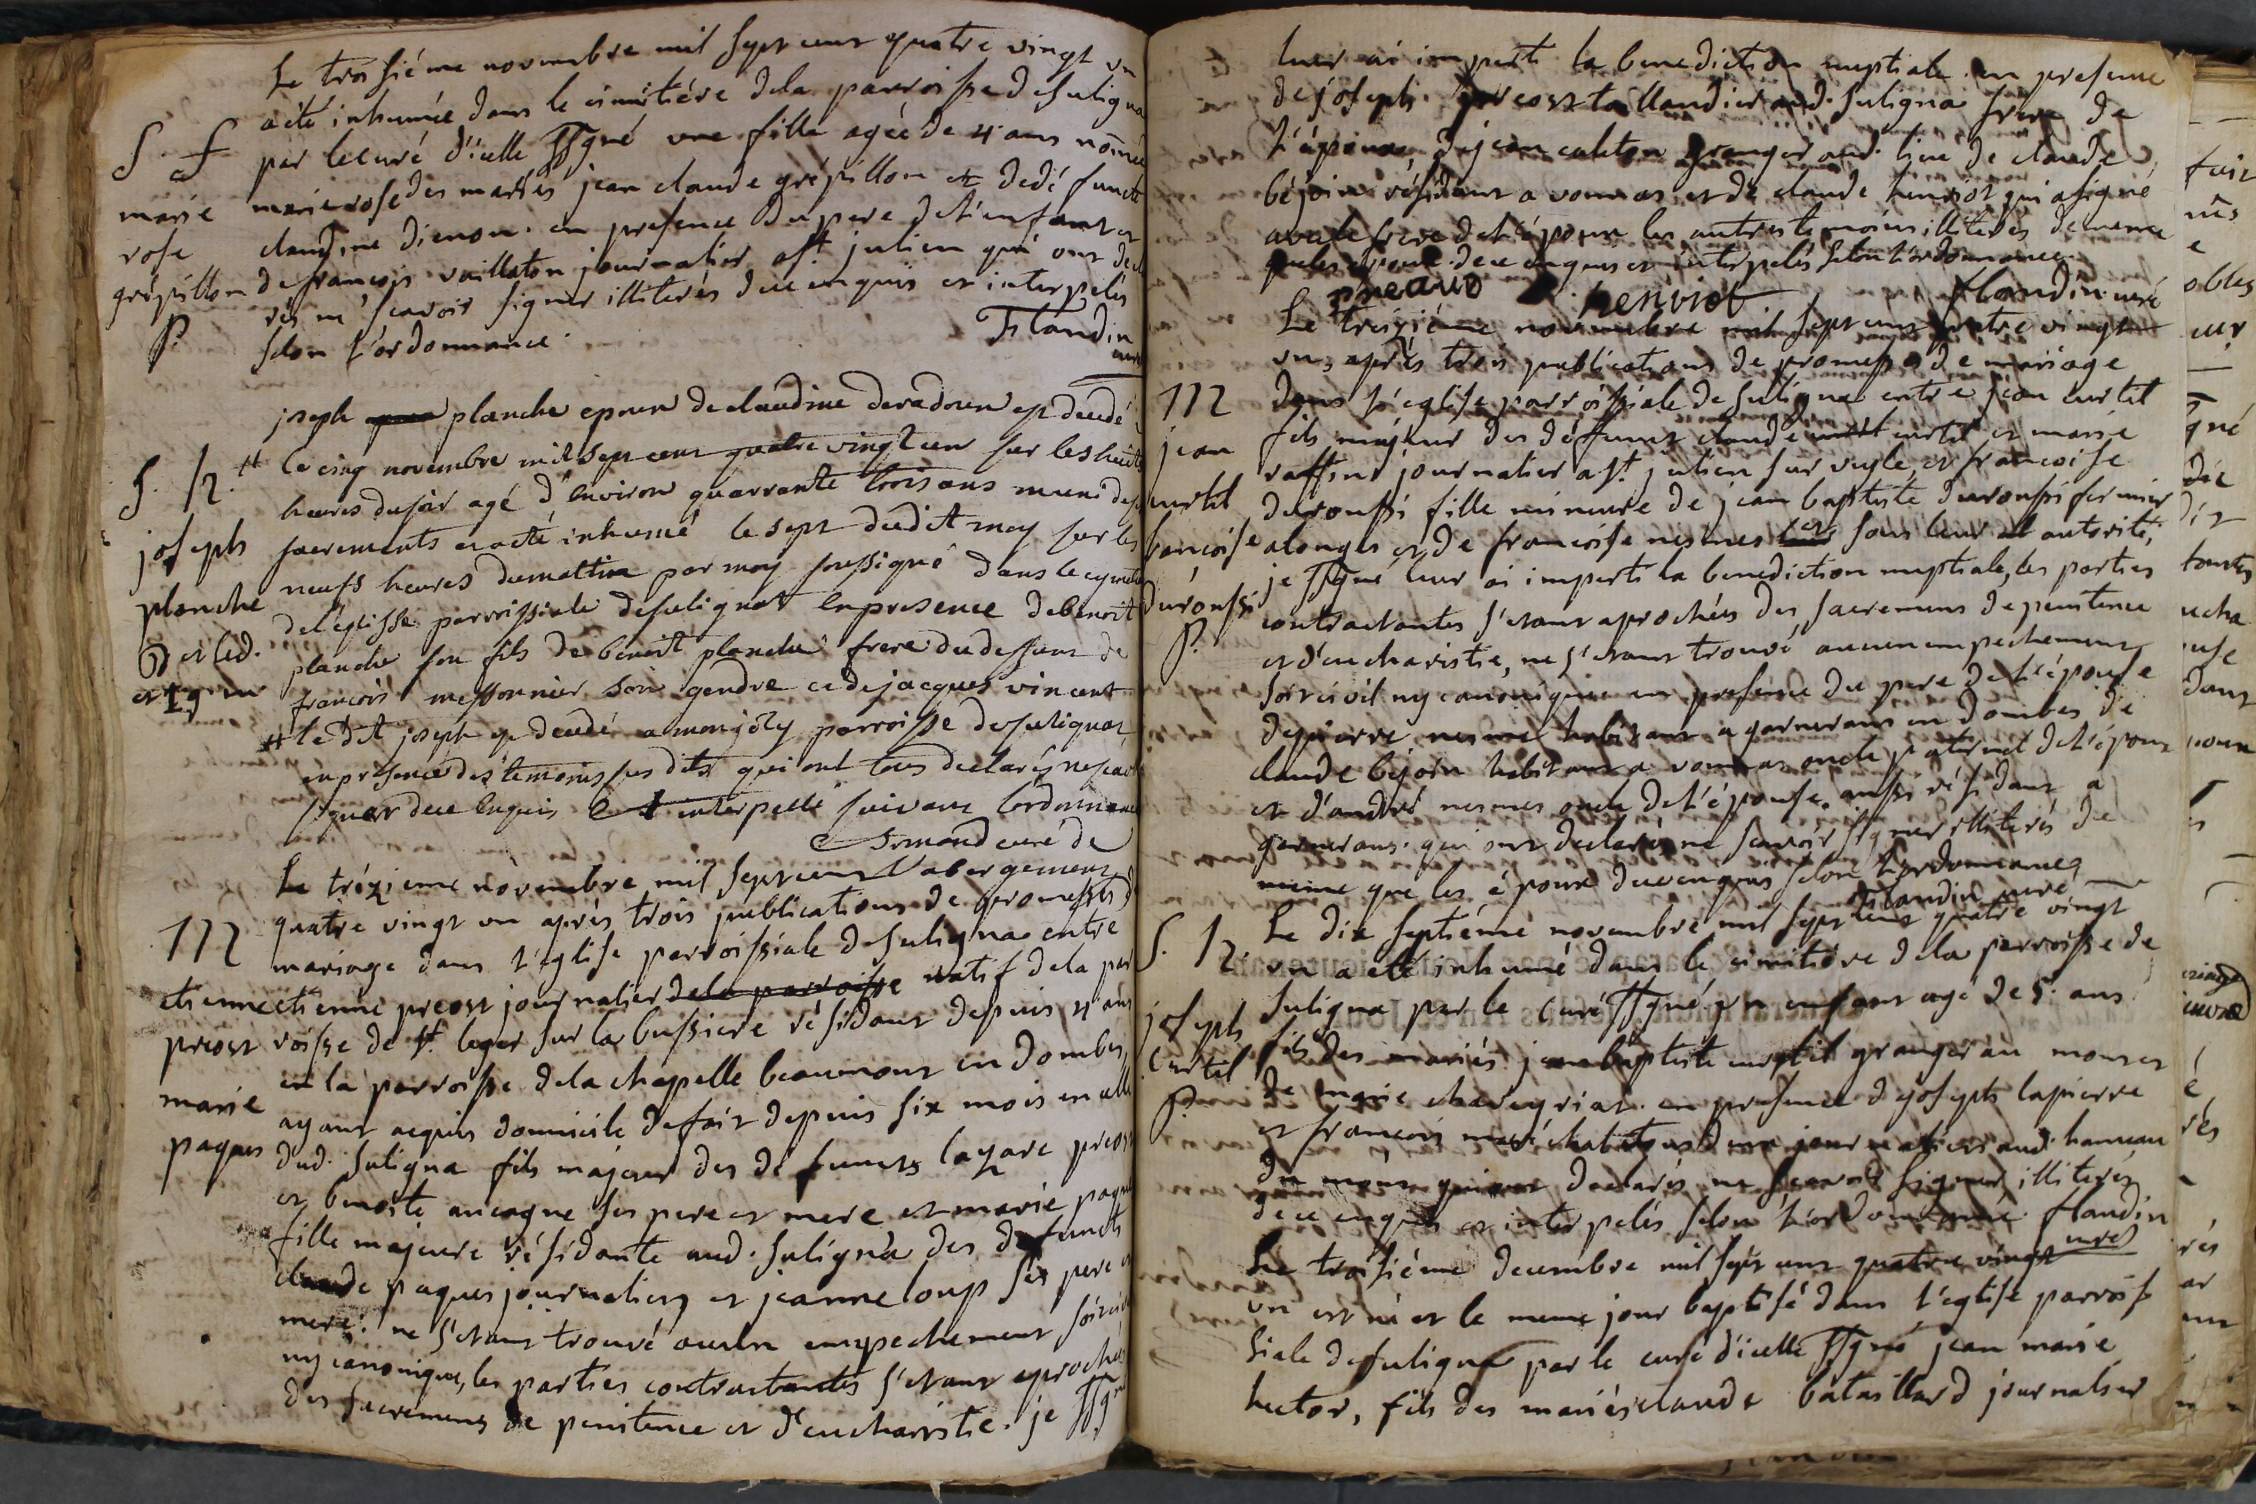 Le troisiéme novembre mil sept cent quatre vingt un
a été inhumée dans le cimitiére dela parroisse de suligna
S. f par lecuré d'icelle ssgné une fille agée de 4 ans nomée
marie marie rose des mariés jean claude grépillon et dedéfuncte
rose claudine dienon. en presence du pere de l'enfant et
grépillon de françois vaillaton journalier a st. julien qui ont decla
rés ne scavoir signer illiterés de ce enquis et interpelés
P. selon l'ordonnance. Flandin
curé
joseph planche epoux de claudine devadoux est decedé
S. h. # le cinq novembre mil sept cent quatre vingt un sur les huit
heures du soir agé d'environ quarrante trois ans muni des
joseph sacrements et a eté inhumé le sept dudit moy sur les
neufs heures du mattin par moy soussigné dans le cymetie
planche del'eglisse parroissiale desulignat enpresence debenoit
planche son fils de benoit planche frere du deffunt de
françois messonnier son gendre et de jacques vincent
# le dit joseph est decedé a monjoly parroisse desulignat
en presence des temoins sus dits qui ont tous declarés ne scavoir
signer de ce enquis et interpellé suivant l'ordonnance
curé de
Le trézieme novembre mil sept cent l'abergement
quatre vingt un aprés trois publications de promesses de
M mariage dans l'eglise parroissiale de suligna entre
etienne etienne preost journalier dela parroisse natif dela par
preost roisse de st. leger sur la bussiere résidant depuis 4 ans
en la parroisse dela chapelle beaumont en dombes,
marie ayant acquis domicile defait depuis six mois en celle
paques dud. suligna fils majeur des défuncts lazare preost
et benoite ancagne ses pere et mere et marie paques
fille majeure résidante aud. suligna des défuncts
claude paques journaliers et jeanne loup ses pere et
mere. ne s'etant trouvé aucun empechement soit civil
ny canonique, les parties contractantes s'etant aprochées
des sacremens de penitence et d'eucharistie. je ssgné
leur ai imparti la benediction nuptiale. en presence
de joseph preost taillandier aud. suligna frere de
l'époux, de jean caleton granger aud. lieu de claude
béjoin résidant a vonnas et de claude henriot qui a signé
avec le frere de l'époux les autres temoins illiterés de meme
que les époux. de ce enquis et interpelés selon l'ordonnance
preaud henriot flandin curé
Le treiziéme novembre mil sept cent quatre vingt
un, aprés trois publications de promesse de mariage
M dans l'eglise parroissiale de suligna entre jean curtil
jean fils majeur des défunts claude curtil et marie
raffin journalier a st. julien sur veyle, et françoise
curtil duroussi fille mineure de jean baptiste duroussi fermier
françoise alonges et de francoise nesmes sous leur autorité,
je ssgné leur ai imparti la benediction nuptiale, les parties
duroussi contractantes s'etant aprochées des sacremens de penitence
P. et d'eucharistie, ne s'etant trouvé aucun empechement
soit civil ny canonique en presence du pere de l'épouse
depierre nesme habitant a garnerans en dombes de
claude bejoin habitant a vonnas oncle paternel de l'époux
et d'andré nesmes oncle de l'épouse aussi résidant a
garnerans. qui ont declaré ne scavoir signer illiterés de
meme que les époux de ce enquis selon l'ordonnance
flandin curé
Le dix septiéme novembre mil sept cent quatre vingt
S. h. un a eté inhumé dans le cimitiére dela parroisse de
suligna par le curé ssgné un enfant agé de 5. ans
joseph fils des mariés jean baptiste curtil granger au mons et
curtil de marie chareyriat. en presence de joseph lapierre
P. et francois journaliers aud. hameau
du mons qui ont declarés ne scavoir signer illiterés
de ce enquis et interpelés selon l'ordonnance. flandin
curé
Le troisiéme decembre mil sept cent quatre vingt
un est né et le meme jour baptisé dans l'eglise parrois
siale de suligna par le curé d'icelle ssgné jean marie
hector, fils des mariés claude bataillard journalier